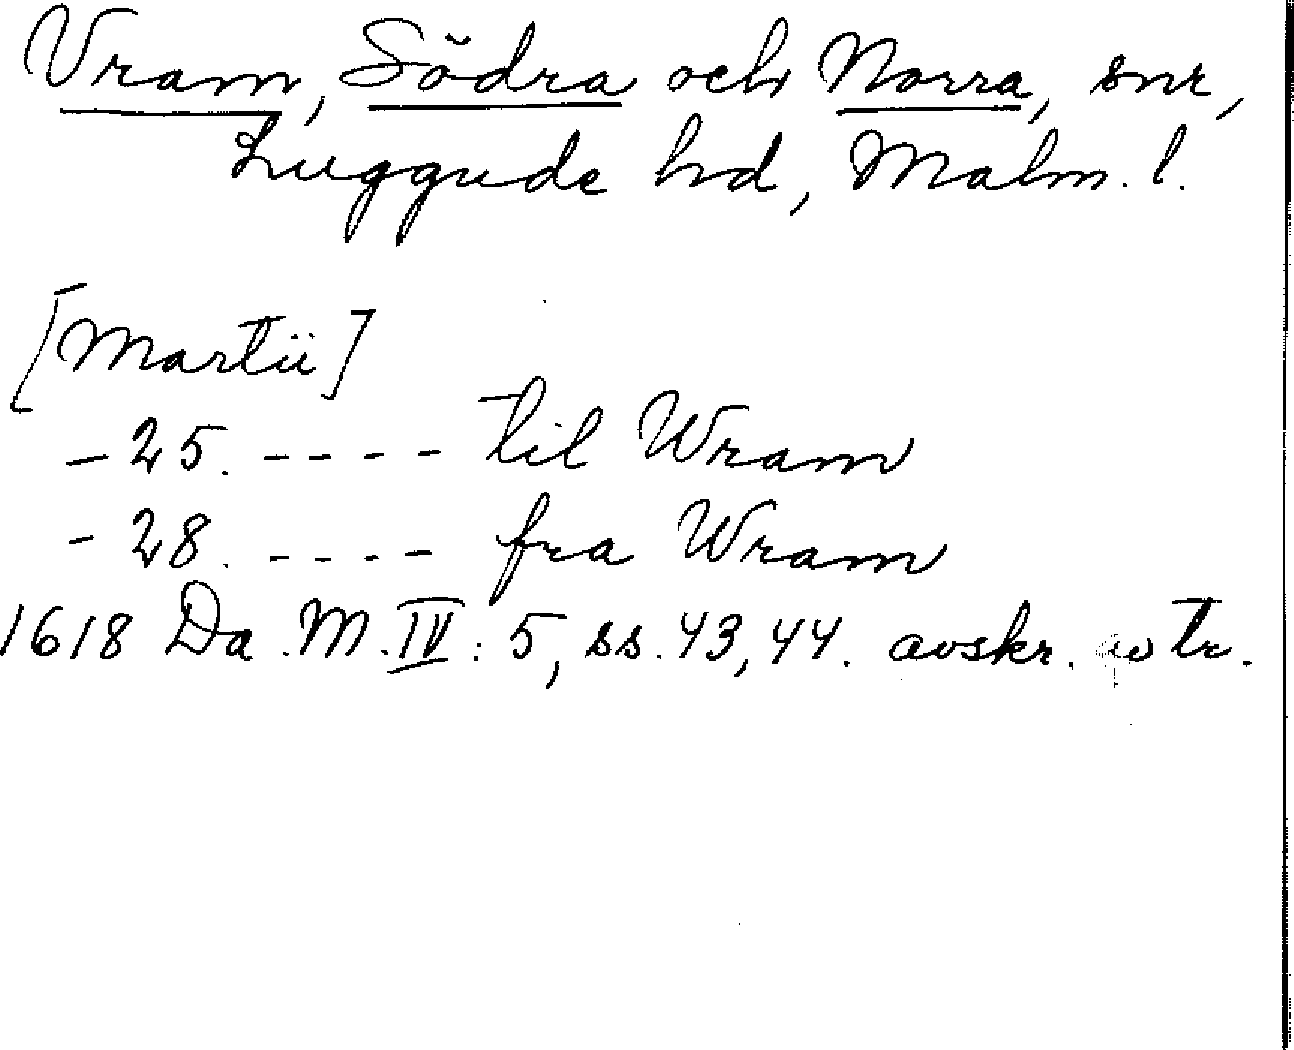 Vram, Södra och Norra, snr,
Luggude hd, Malm. l.
[Martii]
- 25. - - - - til Wram
- 28. - - - - fra Wram
1618 Da. M. IV: 5, ss. 43, 44. avskr. av tr.